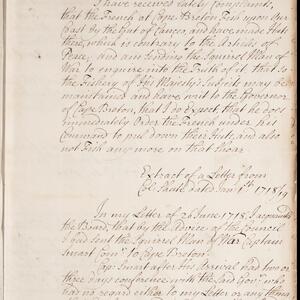 I have received lately Complaints,
that the French at Cape Breton, Fish upon Our
Coast by the Gut of Canço, and have made Huts
there, which is contrary to the Articles of
Peace, and am sending the Squirrel Man of
War to enquire into the Truth of it, that so
the Fishery of His Majesty's Subjects may be
maintained and have writ to the Governor
of Cape Breton, that I do Expect, that he does
immediately Order the French under his
Command to pull down their Huts, and also
not Fish any more on that Shoar
Extract of a Letter from
Col. dated Jan. 9th 1718/9
In my Letter of 26 June 1718. I acquainted
the Board, that by the Advice of the Council
I had sent the Squirrel Man of War Captain
Smart Com.r to Cape Breton.
Cap: Smart after his Arrival had two or
three days Conference with the said Gov.r who
had no regard either to my Letter or any thing